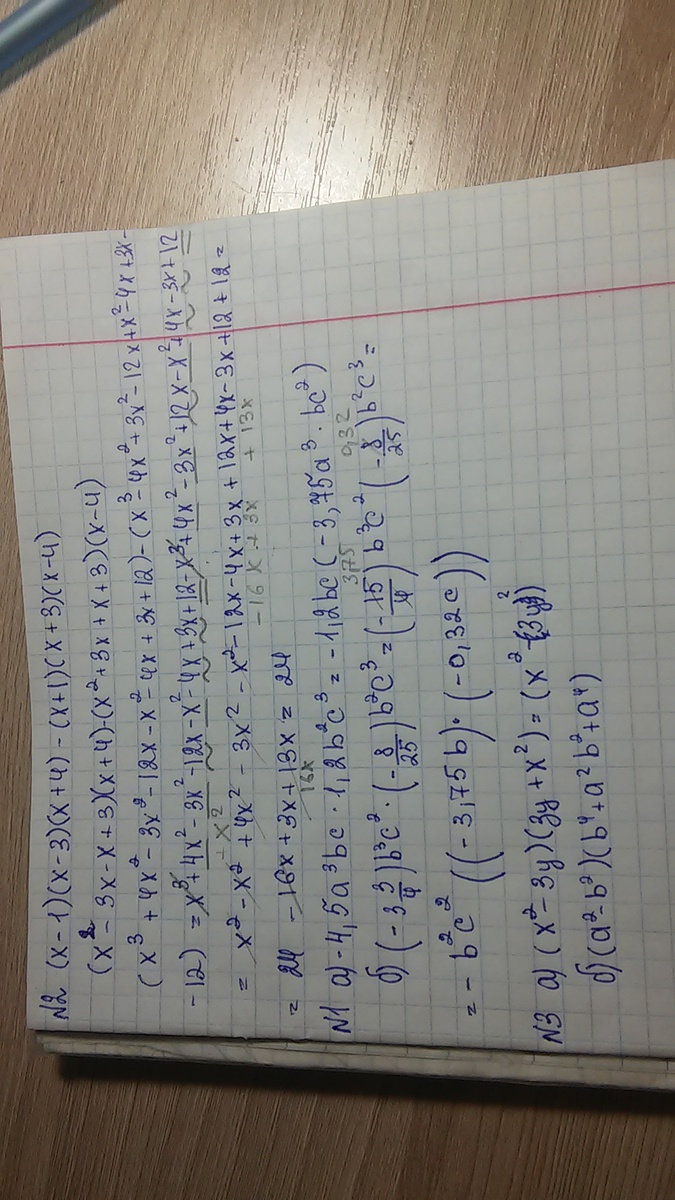 N2 (x-1)(x-3)(x+4) - (x+1)(x+3)(x-4)
(x² - 3x - x + 3)(x+4) - (x² + 3x + x + 3)(x-4)
(x³ + 4x² - 3x² - 12x - x² - 4x + 3x + 12) - (x³ - 4x² + 3x² - 12x + x² - 4x + 3x -
- 12) = x³ + 4x² - 3x² - 12x - x² - 4x + 3x + 12 - x³ + 4x² - 3x² + 12x - x² + 4x - 3x + 12
- x²
= x² - x² + 4x² - 3x² - x² - 12x - 4x + 3x + 12x + 4x - 3x + 12 + 12 =
- 16x + 3x + 13x
= 24 - 16x + 3x + 13x = 24
16x
N1 а) -4,5a³bc · 1,2b²c³ = -1,2bc (-3,75a³ · bc²)
3,75 0,32
б) (-3 3/4)b³c² · (-8/25)b²c³ = (-15/4)b³c² (-8/25)b²c³ =
= - b²c² ((-3,75b) · (-0,32c))
N3 а) (x² - 3y)(3y + x²) = (x² - 3y)²
б) (a² - b²)(b⁴ + a²b² + a⁴)